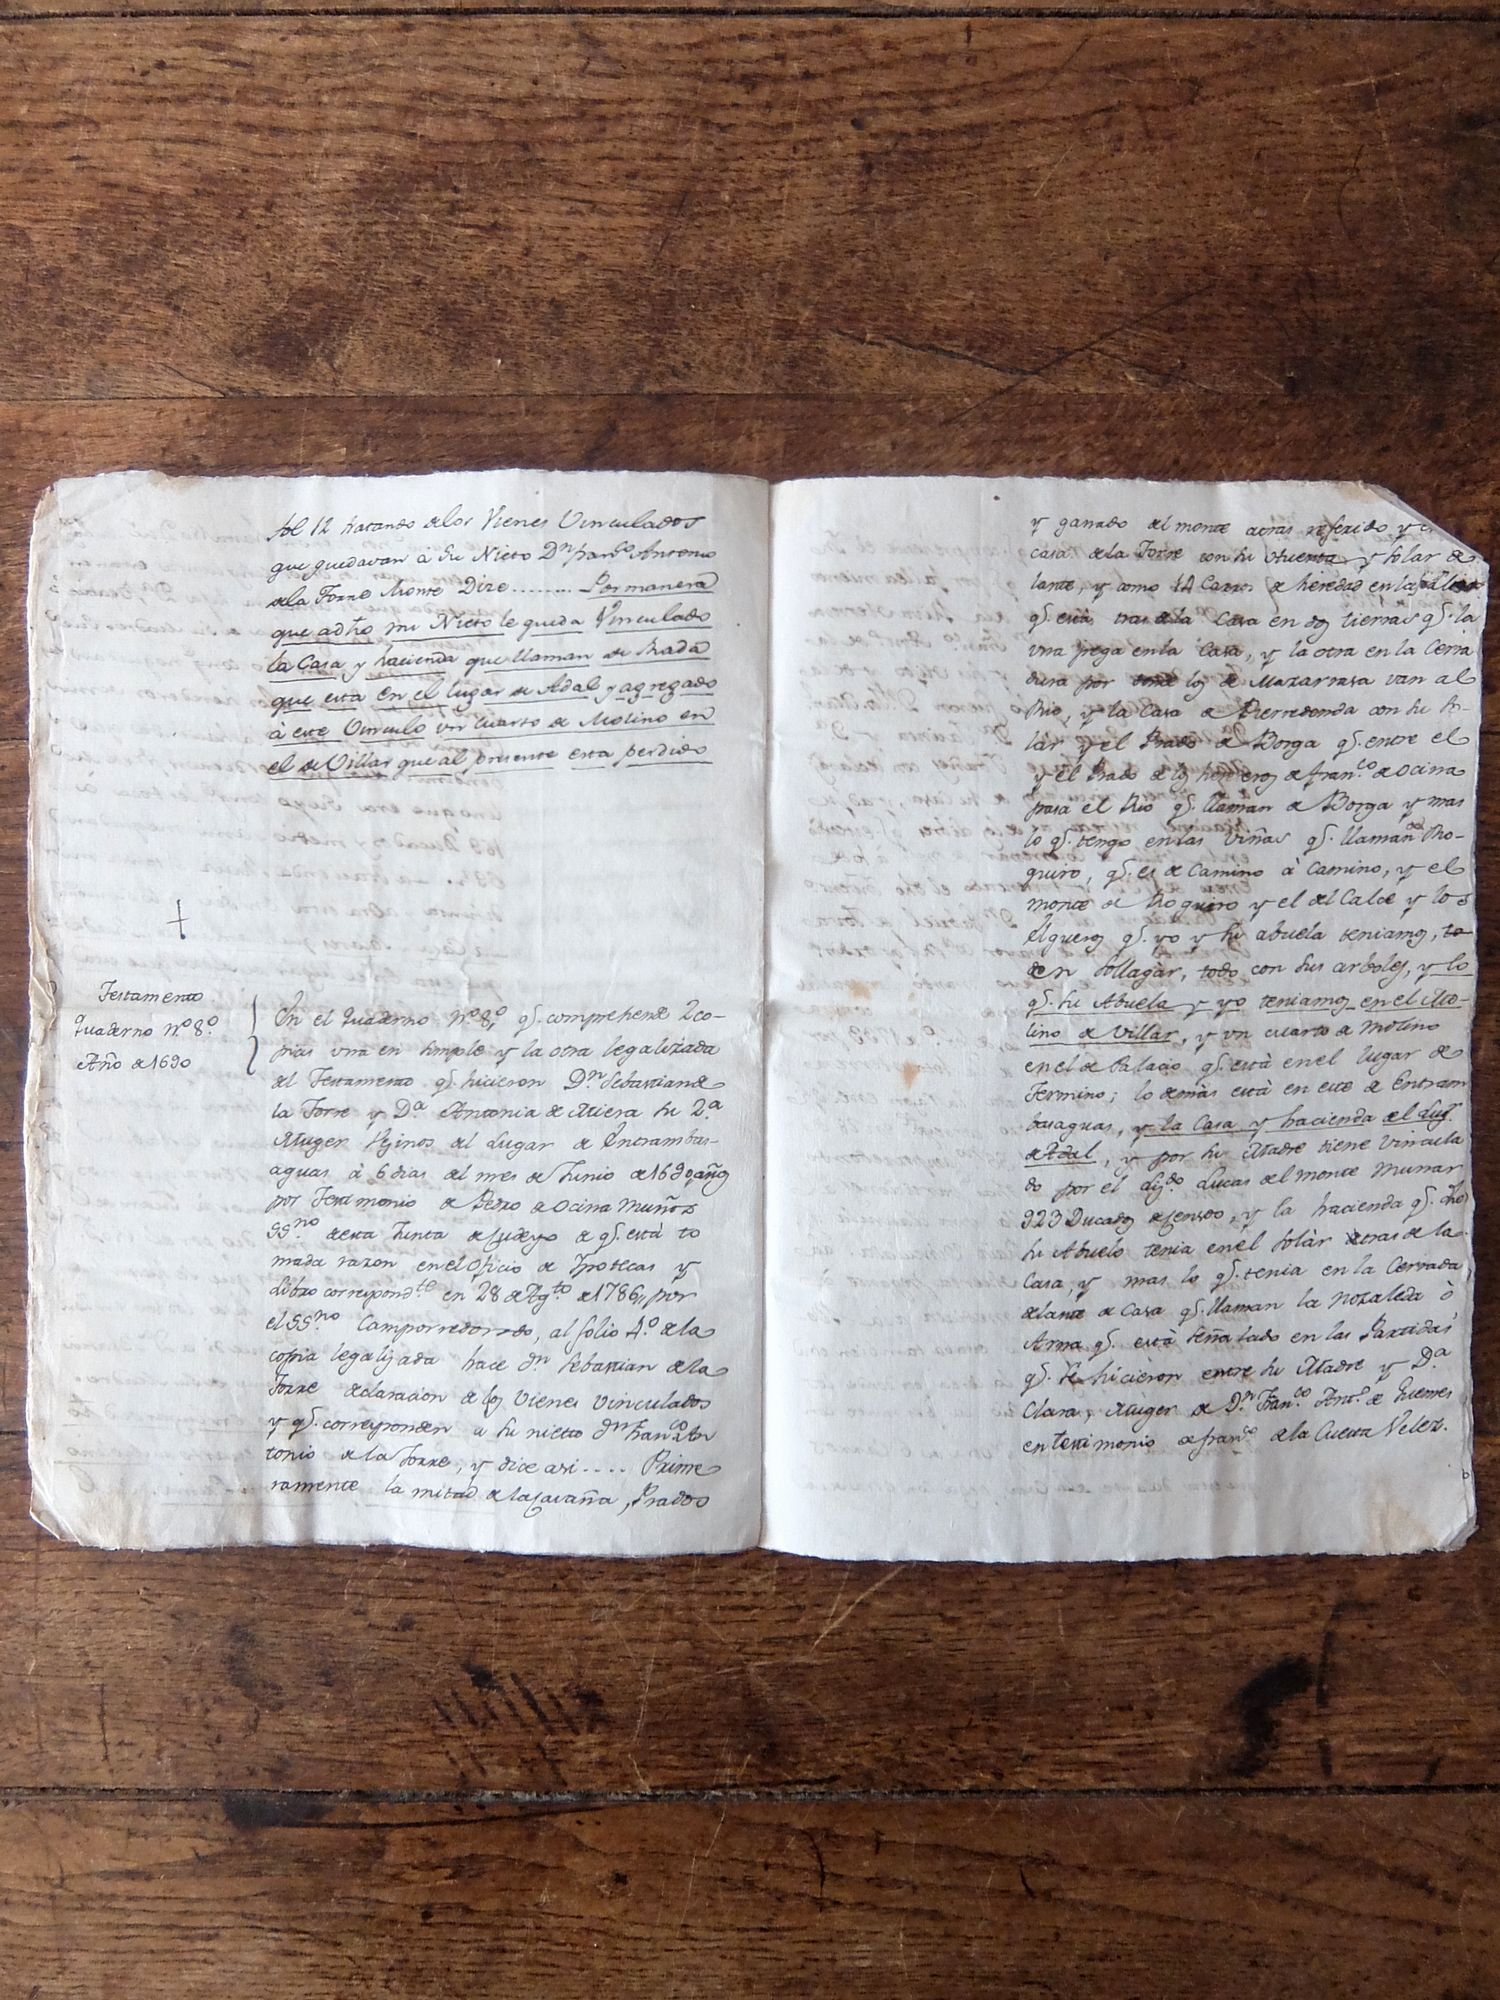 fol 12 tratando de los Vienes Vinculados
que quedavan â su Nieto Dn Franco Antonio
de la Torre Monte Dize........ Por manera
que a dho mi Nieto le queda Vinculado
la Casa y hacienda que llaman de Rada
que esta en el lugar de Adal y agregado
â este Vinculo vn cuarto de Molino en
el de Villar que al presente esta perdido
Testamento
Quaderno No 8o
Año de 1690
En el Quaderno No 8o, q. comprehende 2 co-
pias vna en simple y la otra legalizada
del Testamento q. hicieron Dn Sebastian de
la Torre y Da Antonia de Miera su 2a
Muger Vezinos del Lugar de Entrambas-
aguas â 6 dias del mes de Junio de 1690 años
por Testimonio de Pedro de Ocina Muñoz
SSno de esta Junta de Cudeyo de q. està to
mada razon en el Oficio de Ypotecas y
Libro correspondte en 28 de Agto de 1786,, por
el SSno Camporredondo, al folio 4o de la
copia legalizada hace Dn Sebastian de la
Torre declaracion de los Vienes vinculados
y q. corresponden a su nieto Dn Franco An
tonio de la Torre, y dice asi .... Prime
ramente la mitad de la Cavaña, Prados
y ganado del monte atras referido y
casa de la Torre con su Huerta y solar de
lante, y como 14 Carros de heredad en la
q. està tras de la Casa en dos tierras q. la
vna pega en la Casa, y la otra en la Cerra
dura por donde los de Mazarrasa van al
Rio, y la Casa de Pierredonda con su so-
lar y el Prado de Borga q. entre el
y el Prado de los herederos de Franco de Ocina
pasa el Rio q. llaman de Borga y mas
lo q. tengo en las viñas q. llaman de Ro-
quiro, q. es de Camino à Camino, y el
monte de Roquiro y el del Calce y los
Elgueros q. yo y su abuela teniamos, to
do en Sollagàr, todo con sus arboles, y lo
q. su Abuela y yo teniamos en el Mo-
lino de Villar, y vn cuarto de Molino
en el de Palacio q. està en el lugar de
Termino; lo demàs està en este de Entram
basaguas, y la Casa y hacienda del Lugr
de Adal, y por su Madre tiene Vincula
do por el Lizdo Lucas del monte Munar
923 Ducados de censo, y la hacienda q. dho
su Abuelo tenia en el Solàr atras de la
Casa, y mas lo q. tenia en la Cerrada
delante de Casa q. llaman la Nozaleda ò
Arma q. està señalado en las Partidas
q. se hicieron entre su Madre y Da
Clara, Muger de Dn Franco Anto de Guemes
en testimonio de Franco de la Cuesta Velez.